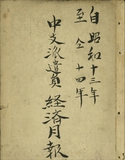 自昭和十三年
至仝十四年
中支派遣員経済月報